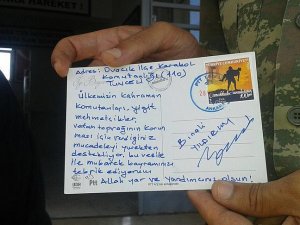 HAREKET !
Adres: Ovacık İlçe Karakol
Komutanlığı (710)
TUNCELİ
Ülkemizin kahraman
komutanları, yiğit
mehmetcikler,
vatan toprağının korun
ması için verdiğiniz
mücadeleyi yürekten
destekliyor, bu vesile
ile mübarek bayramınızı
tebrik ediyorum
Allah yar ve yardımcınız olsun!
Binali
YILDIRIM
TÜRKİYE CUMHURİYETİ
PTT